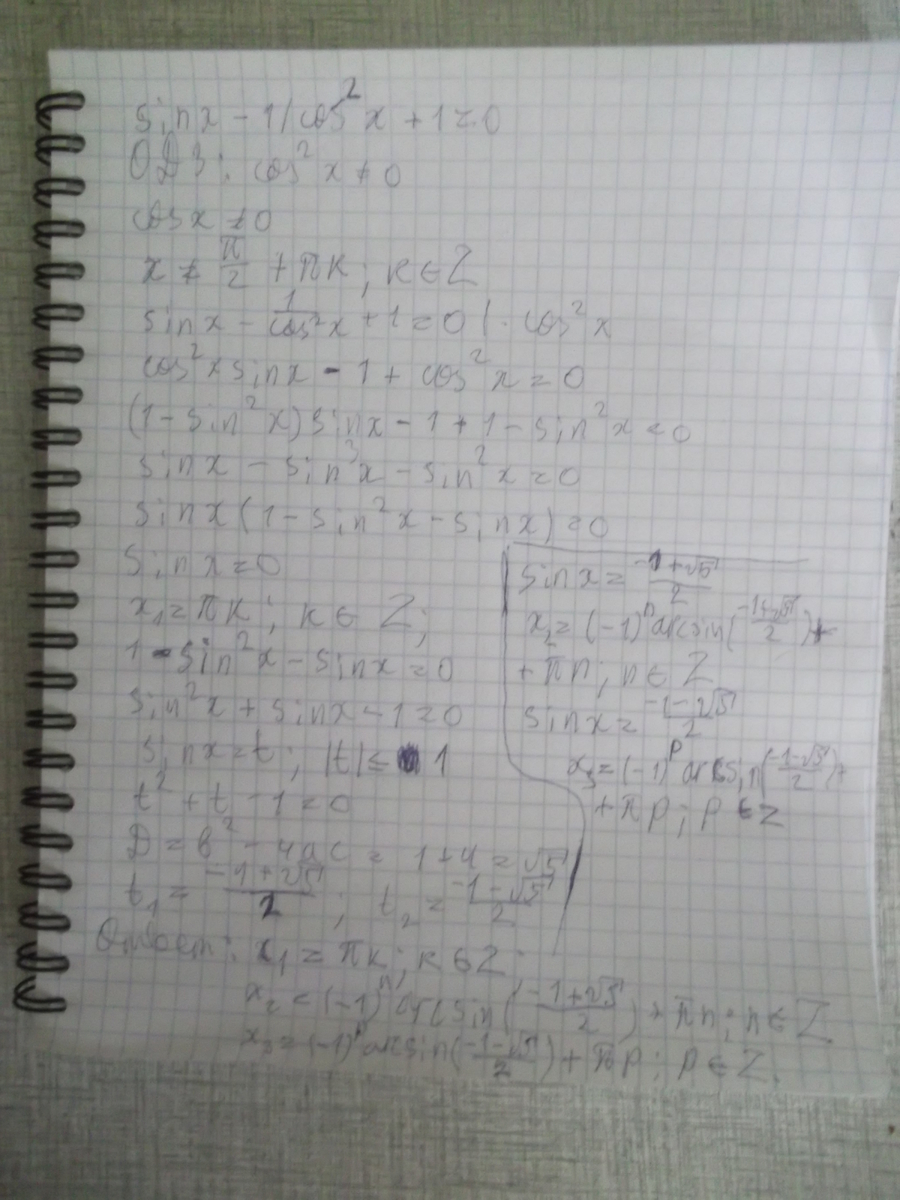 sinx - 1/cos²x + 1 = 0
ОДЗ: cos²x ≠ 0
cosx ≠ 0
x ≠ π/2 + πk; k ∈ Z
sinx - 1/cos²x + 1 = 0 | · cos²x
cos²x sinx - 1 + cos²x = 0
(1 - sin²x) sinx - 1 + 1 - sin²x = 0
sinx - sin³x - sin²x = 0
sinx (1 - sin²x - sinx) = 0
sinx = 0
x₁ = πk; k ∈ Z;
1 - sin²x - sinx = 0
sin²x + sinx - 1 = 0
sinx = t; |t| ≤ 1
t² + t - 1 = 0
D = b² - 4ac = 1 + 4 = √5
t₁ = (-1+√5)/2; t₂ = (-1-√5)/2
sinx = (-1+√5)/2
x₂ = (-1)ⁿ arcsin((-1+√5)/2) +
+ πn; n ∈ Z
sinx = (-1-√5)/2
x₃ = (-1)ᵖ arcsin((-1-√5)/2) +
+ πp; p ∈ Z
Ответ: x₁ = πk; k ∈ Z;
x₂ = (-1)ⁿ arcsin((-1+√5)/2) + πn; n ∈ Z
x₃ = (-1)ᵖ arcsin((-1-√5)/2) + πp; p ∈ Z.